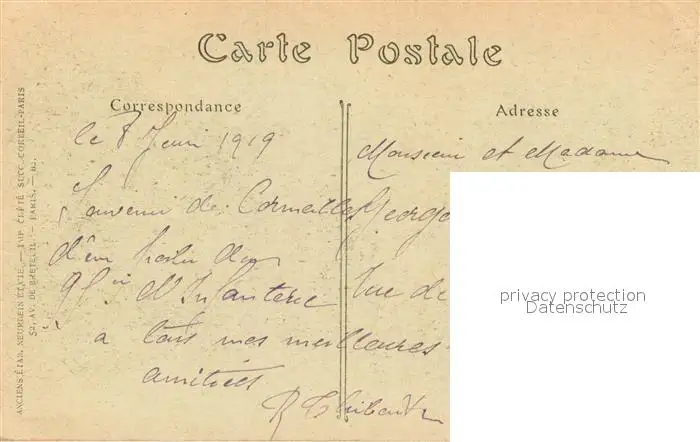 Carte Postale
Correspondance
Adresse
le 8 1919
Monsieur et Madame
Souvenir de Cormeilles
George
d'un
d'Infanterie
rue de
a tous mes meilleures
amitiés
R Thibault
privacy protection
Datenschutz
ANCIENS ETAB. NEURDEIN ET CIE. — IMP. CRÉTÉ SUCC. CORBEIL-PARIS
52, AV. DE BRETEUIL — PARIS.